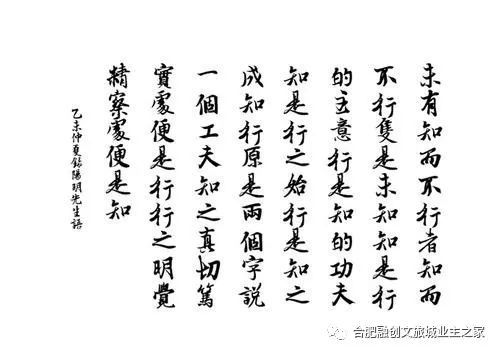 未有知而不行者知而
不行隻是未知知是行
的主意行是知的功夫
知是行之始行是知之
成知行原是兩個字說
一個工夫知之真切篤
實處便是行行之明覺
精察處便是知
乙未仲夏錄陽明先生語
合肥融创文旅城业主之家